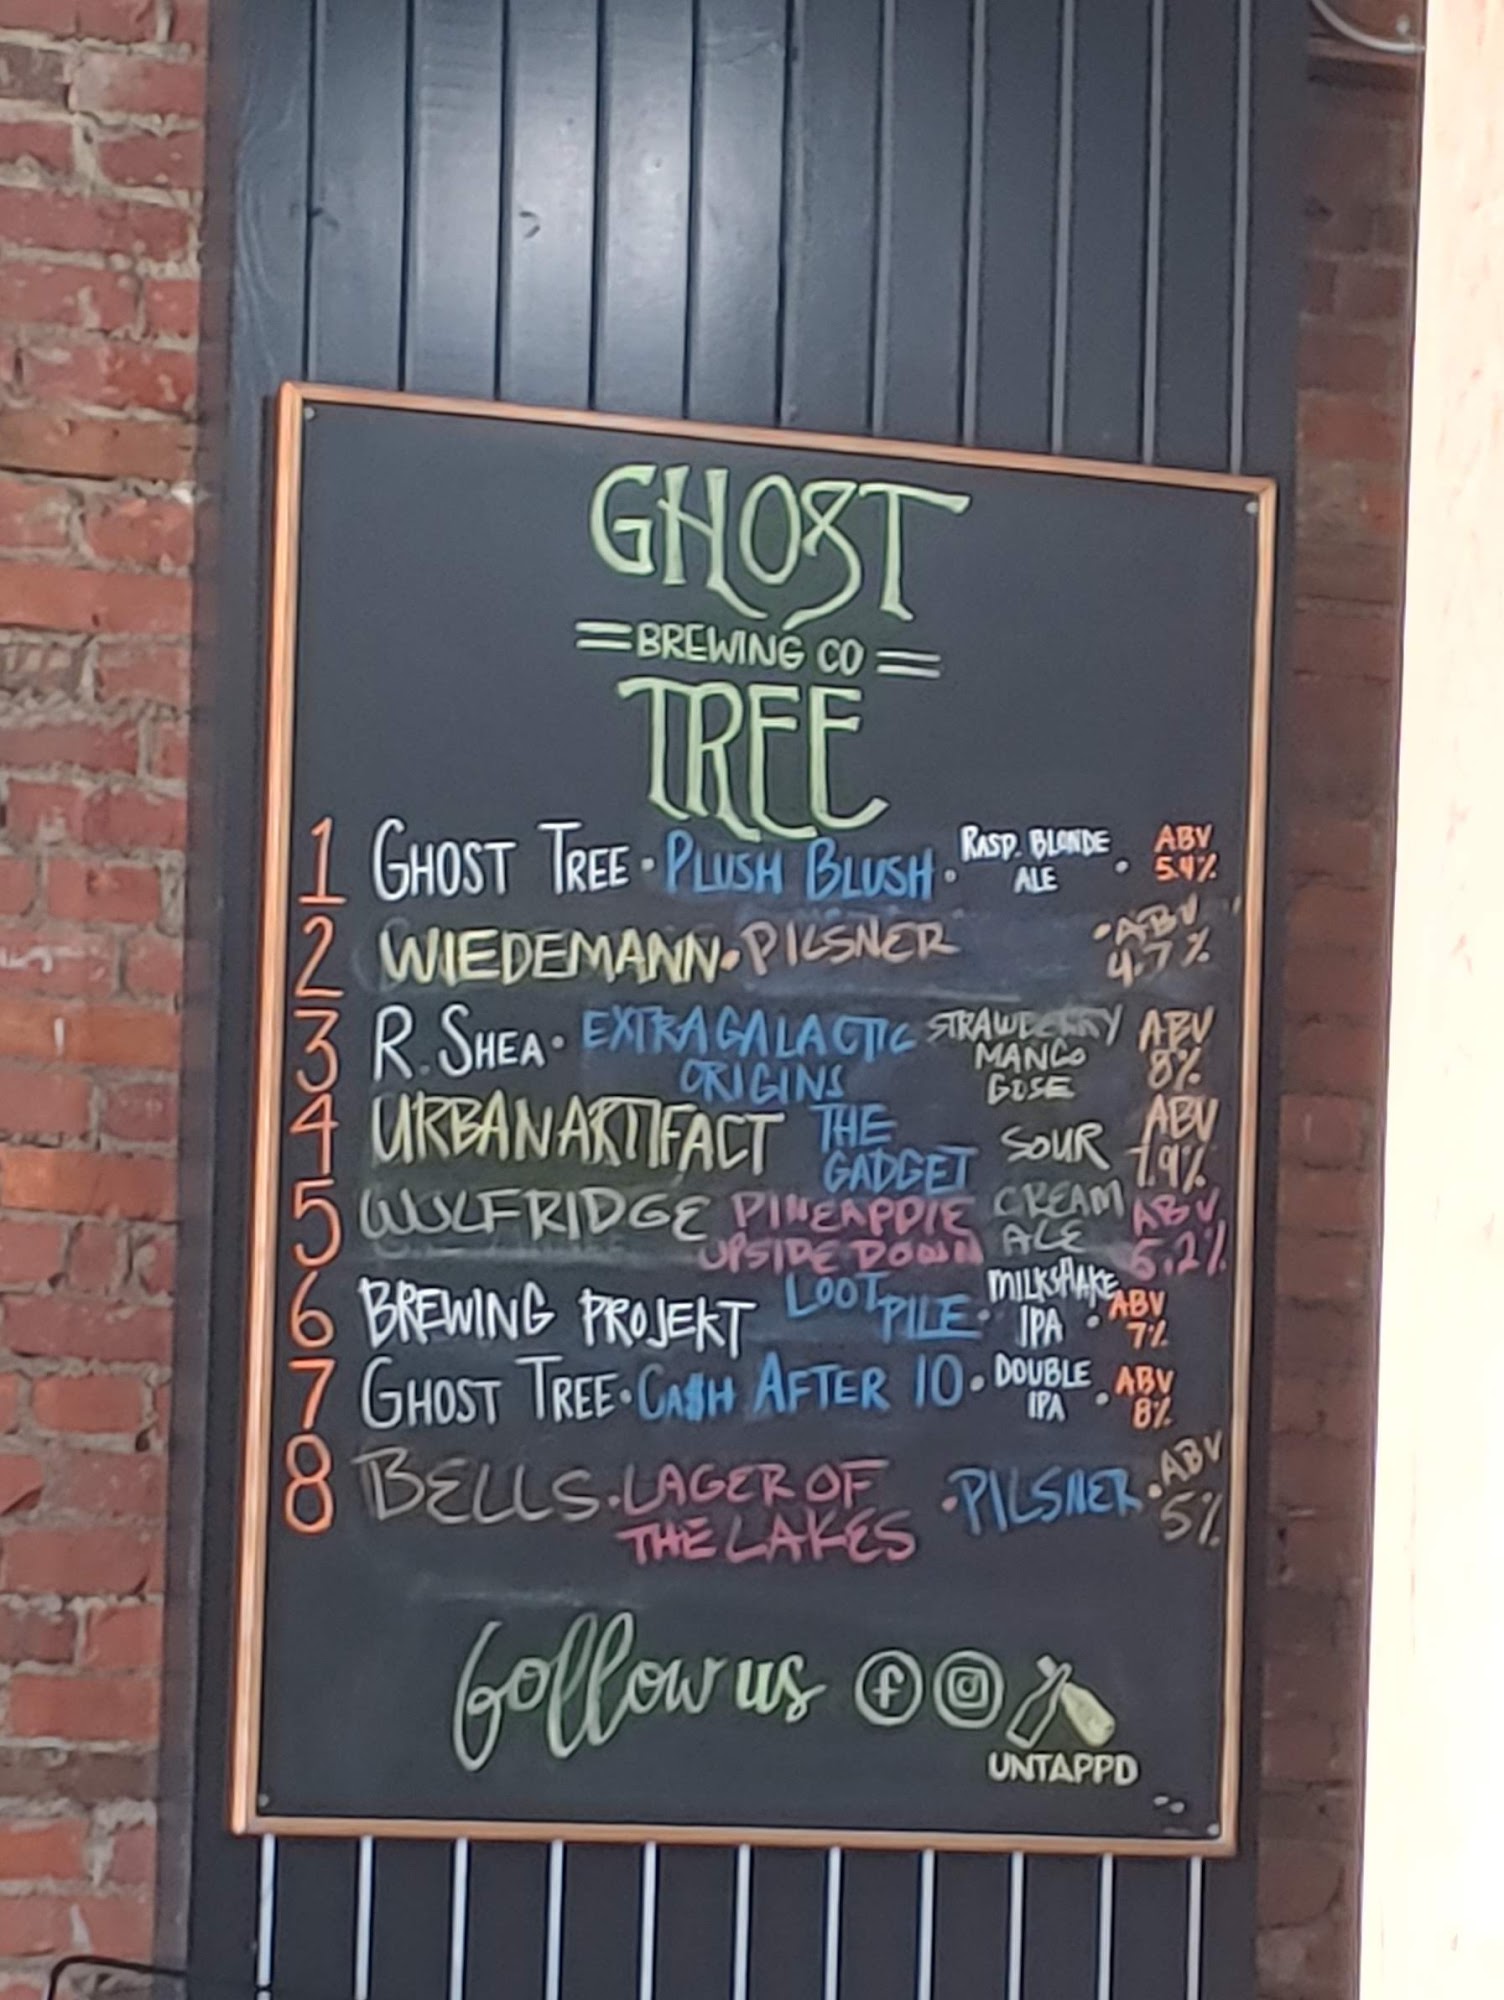 GHOST
BREWING CO
TREE
1 GHOST TREE · PLUSH BLUSH · RASP. BLONDE ALE · ABV 5.4%
2 WIEDEMANN · PILSNER · ABV 4.7%
3 R. SHEA · EXTRAGALACTIC ORIGINS STRAWBERRY MANGO GOSE ABV 8%
4 URBAN ARTIFACT THE GADGET SOUR ABV
5 WULFRIDGE PINEAPPLE UPSIDE DOWN CREAM ALE ABV 5.2%
6 BREWING PROJEKT LOOT PILE · MILKSHAKE IPA · ABV 7%
7 GHOST TREE · CA$H AFTER 10 · DOUBLE IPA · ABV 8%
8 BELLS · LAGER OF THE LAKES · PILSNER · ABV 5%
follow us f
UNTAPPD